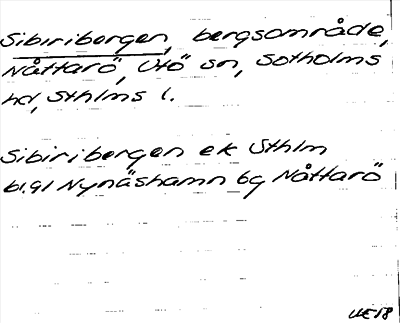 Sibiribergen, bergsområde,
Nåttarö, Utö sn, Sotholms
hd, Sthlms l.
Sibiribergen ek Sthlm
bl.91 Nynäshamn 6g Nåttarö